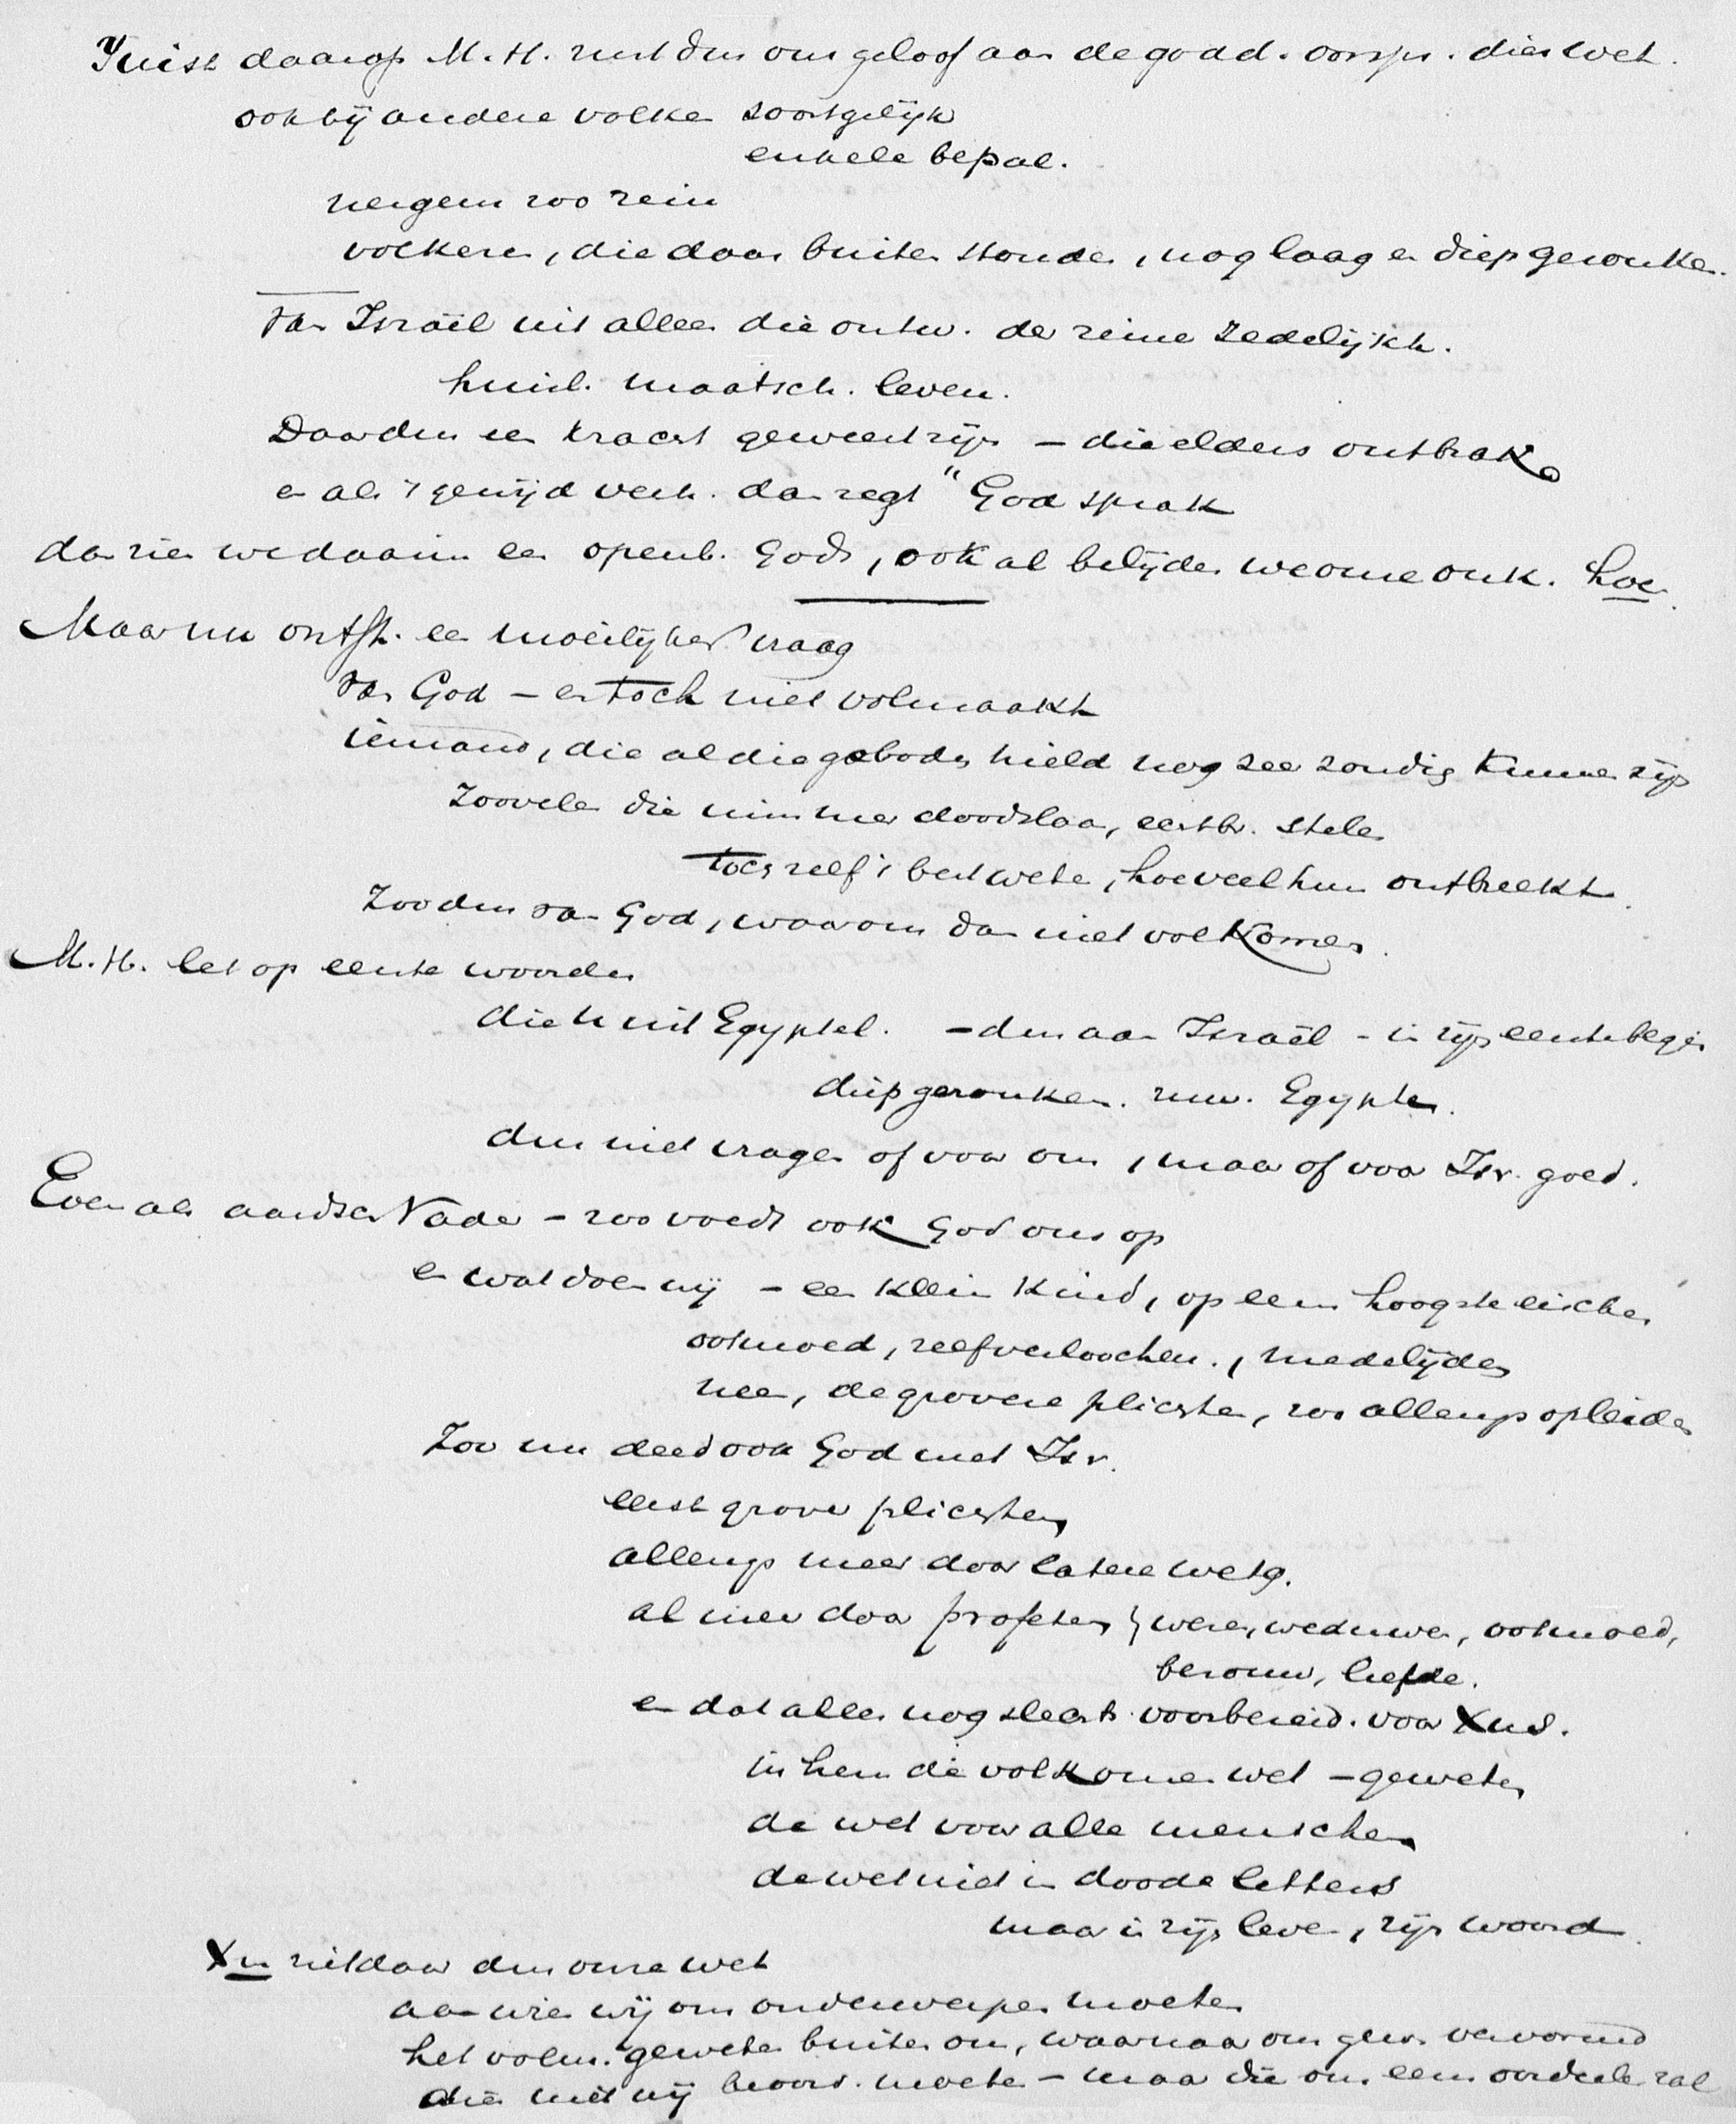 Juist daarop M.H. rust dus ons geloof aan de godd. oorspr. dier wet.
ook bij andere volken soortgelijk
enkele bepal.
nergens zoo rein
volkeren, die daar buiten stonden, nog laag en diep gezonken.
Van Israël uit alleen die ontw. der reine zedelijkh.
huisl. maatsch. leven.
Daar dus een kracht geweest zijn – die elders ontbrak
en als 't gewijd verh. dan zegt "God sprak
dan zien we daarin een openb. Gods, ook al belijden we onze onk. hoe.
Maar nu ontst. een moeilijker vraag
Van God – en toch niet volmaakt
iemand, die al die geboden hield nog zeer zondig kunnen zijn
Zoovelen die nimmer doodslaan, echtbr. stelen
toch zelf 't best weten, hoeveel hun ontbreekt.
Zoo dus van God, waarom dan niet volkomen.
M.H. let op eerste woorden
die u uit Egyptel. – dus aan Israël – in zijn eerste begin
diep gezonken. ruw. Egypten.
dus niet vragen of voor ons, maar of voor Isr. goed.
Evenals aardsch Vader – zoo voedt ook God ons op
en wat doen wij – een klein kind, op eens hoogste eischen
ootmoed, zelfverloochen., medelijden
neen, de grovere plichten, zoo allengs opleiden
Zoo nu deed ook God met Isr.
eerst grove plichten
allengs meer door latere wetg.
al meer door profeten } wezen, weduwen, ootmoed,
berouw, liefde.
en dat alles nog slechts voorbereid. voor Xus.
in hem de volkomen wet – geweten
de wet voor alle menschen
de wet niet in doode letters
maar in zijn leven, zijn woord.
Xus ziet daar dus onze wet
aan wien wij ons onderwerpen moeten
het volm. geweten buiten ons, waarnaar ons gew. vervormd
dien niet wij beoord. moeten – maar die ons eens oordeelen zal